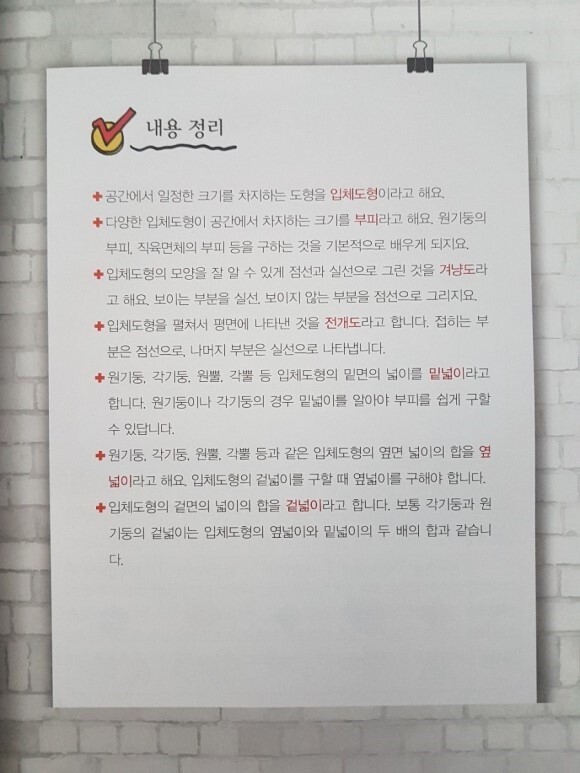 내용 정리
공간에서 일정한 크기를 차지하는 도형을 입체도형이라고 해요.
다양한 입체도형이 공간에서 차지하는 크기를 부피라고 해요. 원기둥의
부피, 직육면체의 부피 등을 구하는 것을 기본적으로 배우게 되지요.
입체도형의 모양을 잘 알 수 있게 점선과 실선으로 그린 것을 겨냥도라
고 해요. 보이는 부분을 실선, 보이지 않는 부분을 점선으로 그리지요.
입체도형을 펼쳐서 평면에 나타낸 것을 전개도라고 합니다. 접히는 부
분은 점선으로, 나머지 부분은 실선으로 나타냅니다.
원기둥, 각기둥, 원뿔, 각뿔 등 입체도형의 밑면의 넓이를 밑넓이라고
합니다. 원기둥이나 각기둥의 경우 밑넓이를 알아야 부피를 쉽게 구할
수 있답니다.
원기둥, 각기둥, 원뿔, 각뿔 등과 같은 입체도형의 옆면 넓이의 합을 옆
넓이라고 해요. 입체도형의 겉넓이를 구할 때 옆넓이를 구해야 합니다.
입체도형의 겉면의 넓이의 합을 겉넓이라고 합니다. 보통 각기둥과 원
기둥의 겉넓이는 입체도형의 옆넓이와 밑넓이의 두 배의 합과 같습니
다.